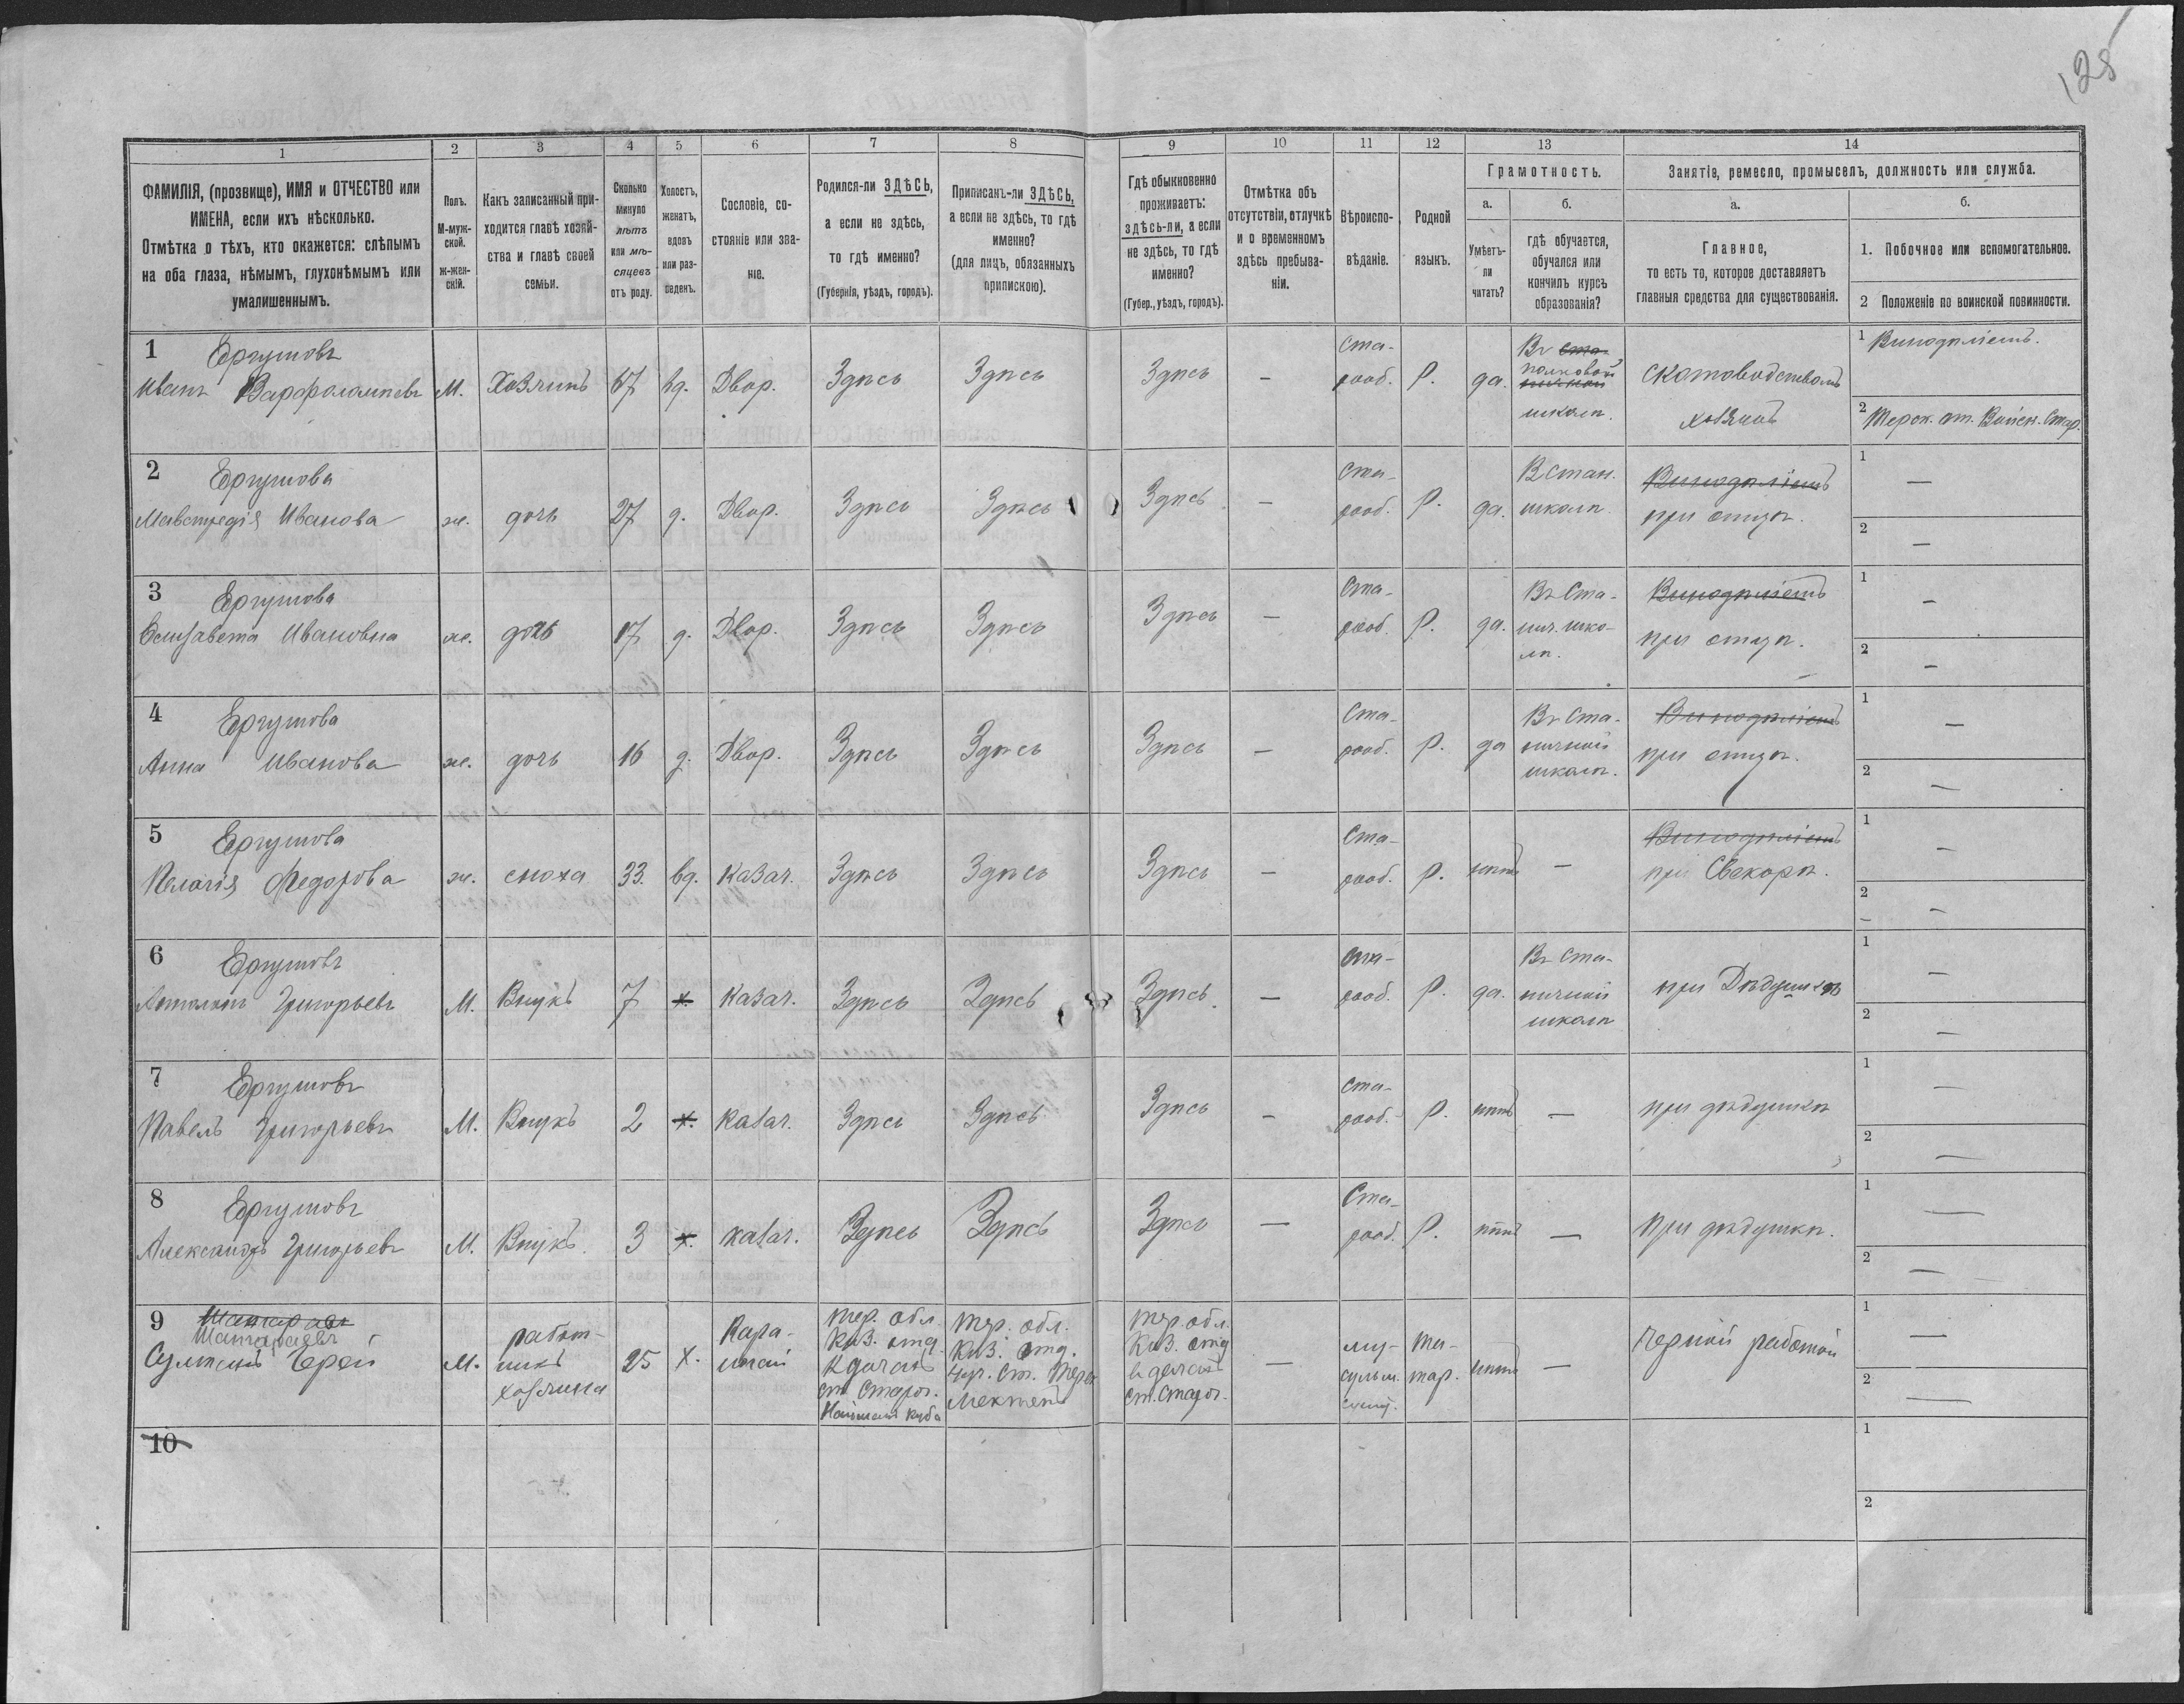 128
1
2
3
4
5
6
7
8
9
10
11
12
13
14
ФАМИЛІЯ, (прозвище), ИМЯ и ОТЧЕСТВО или
ИМЕНА, если ихъ нѣсколько.
Отмѣтка о тѣхъ, кто окажется: слѣпымъ
на оба глаза, нѣмымъ, глухонѣмымъ или
умалишеннымъ.
Полъ.
М-муж-
ской.
ж-жен-
скій.
Какъ записанный при-
ходится главѣ хозяй-
ства и главѣ своей
семьи.
Сколько
минуло
лѣтъ
или мѣ-
сяцевъ
отъ роду.
Холостъ,
женатъ,
вдовъ
или раз-
веденъ.
Сословіе, со-
стояніе или зва-
ніе.
Родился-ли ЗДѢСЬ,
а если не здѣсь,
то гдѣ именно?
(Губернія, уѣздъ, городъ).
Приписанъ-ли ЗДѢСЬ,
а если не здѣсь, то гдѣ
именно?
(для лицъ, обязанныхъ
припискою).
Гдѣ обыкновенно
проживаетъ:
здѣсь-ли, а если
не здѣсь, то гдѣ
именно?
(Губер., уѣздъ, городъ).
Отмѣтка объ
отсутствіи, отлучкѣ
и о временномъ
здѣсь пребыва-
ніи.
Вѣроиспо-
вѣданіе.
Родной
языкъ.
Грамотность.
а.
Умѣетъ-
ли
читать?
б.
гдѣ обучается,
обучался или
кончилъ курсъ
образованія?
Занятіе, ремесло, промыселъ, должность или служба.
а.
Главное,
то есть то, которое доставляетъ
главныя средства для существованія.
б.
1. Побочное или вспомогательное.
2 Положеніе по воинской повинности.
1 Ергушовъ
Иванъ Варфоломѣевъ М. Хозяинъ 67 вд. Двор. Здѣсь Здѣсь Здѣсь — Ста-
рооб. Р. да. Въ ста-
полковой
ничной
школѣ. Скотоводствомъ
хозяинъ
1 Винодѣліемъ.
2 Терск. Войск. Стар.
2 Ергушова
Мавстредія Иванова ж. дочь 27 д. Двор. Здѣсь Здѣсь Здѣсь — Ста-
рооб. Р. да. В Стан.
школѣ Винодѣліемъ
при отцѣ.
1 —
2 —
3 Ергушова
Елизавета Ивановна ж. дочь 17 д. Двор. Здѣсь Здѣсь Здѣсь — Ста-
рооб. Р. да. Въ Ста-
нич. шко-
лѣ. Винодѣліемъ
при отцѣ.
1 —
2 —
4 Ергушова
Анна Иванова ж. дочь 16 д. Двор. Здѣсь Здѣсь Здѣсь — Ста-
рооб. Р. да Въ Ста-
ничной
школѣ. Винодѣліемъ
при отцѣ.
1 —
2 —
5 Ергушова
Пелагія Федорова ж. сноха 33. вд. казач. Здѣсь Здѣсь Здѣсь — Ста-
рооб. Р. нѣтъ — Винодѣліемъ
при Свекорѣ.
1 —
2 —
6 Ергушовъ
Григорьевъ М. Внукъ 7 х. казач. Здѣсь Здѣсь Здѣсь. — Ста-
рооб. Р. да. Въ Ста-
ничной
школѣ при Дѣдушкѣ
1 —
2 —
7 Ергушовъ
Павелъ Григорьевъ М. Внукъ 2 х. казач. Здѣсь Здѣсь Здѣсь — Ста-
рооб. Р. нѣтъ — при дѣдушкѣ
1 —
2 —
8 Ергушовъ
Александръ Григорьевъ М. Внукъ. 3 х. казач. Здѣсь Здѣсь Здѣсь — Ста-
рооб. Р. нѣтъ — При дѣдушкѣ.
1 —
2 —
9 Шатаровъ
Султанъ Герей М. работ-
никъ
хозяина 25 х. Кара-
ногай
Тер. обл.
Киз. отд.
ст. Старог.
Тер. обл.
Киз. отд.
Тер. обл.
Киз. отд
ст. Старог.
— му-
сульм. та-
тар. нѣтъ — Черной работой
1 —
2 —
10
1
2